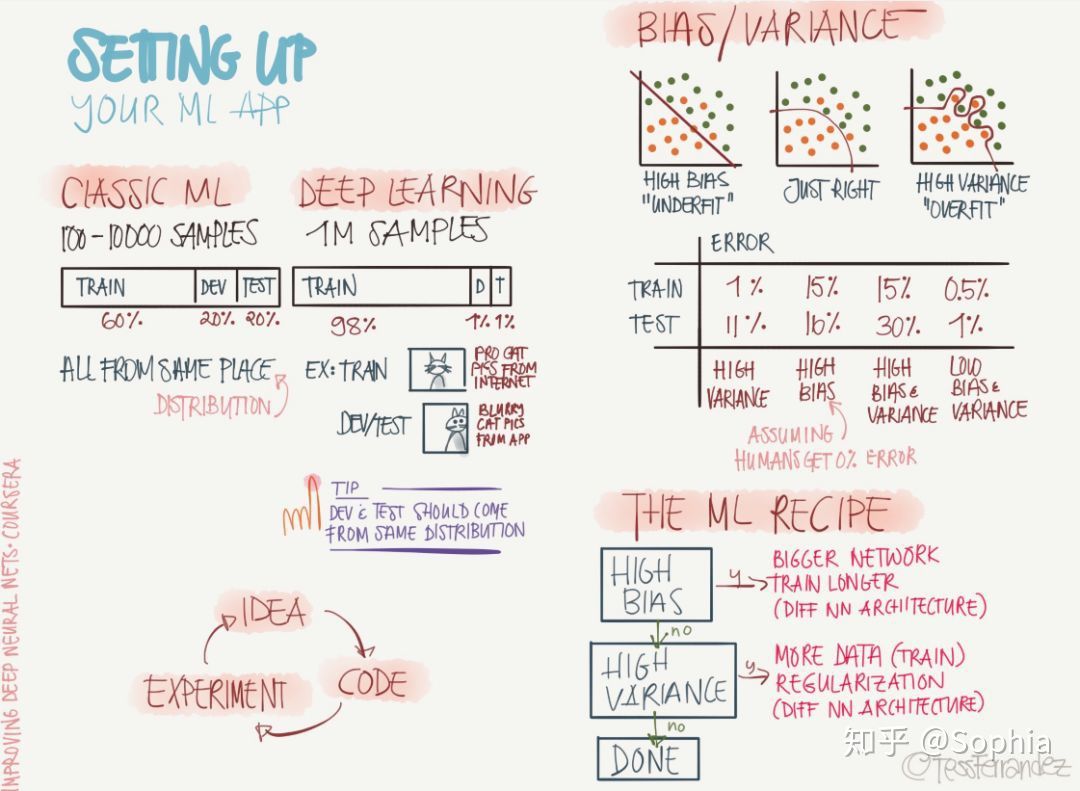 SETTING UP
YOUR ML APP
CLASSIC ML
100-10000 SAMPLES
TRAIN DEV TEST
60% 20% 20%
ALL FROM SAME PLACE
DISTRIBUTION
DEEP LEARNING
1M SAMPLES
TRAIN D T
98% 1% 1%
EX: TRAIN
PRO CAT
PICS FROM
INTERNET
DEV/TEST
BLURRY
CAT PICS
FROM APP
TIP
DEV & TEST SHOULD COME
FROM SAME DISTRIBUTION
IDEA
CODE
EXPERIMENT
IMPROVING DEEP NEURAL NETS · COURSERA
BIAS/VARIANCE
HIGH BIAS
"UNDERFIT"
JUST RIGHT
HIGH VARIANCE
"OVERFIT"
ERROR
TRAIN 1% 15% 15% 0.5%
TEST 11% 16% 30% 1%
HIGH
VARIANCE
HIGH
BIAS
HIGH
BIAS &
VARIANCE
LOW
BIAS &
VARIANCE
ASSUMING
HUMANS GET 0% ERROR
THE ML RECIPE
HIGH
BIAS
y
BIGGER NETWORK
TRAIN LONGER
(DIFF NN ARCHITECTURE)
no
HIGH
VARIANCE
y
MORE DATA (TRAIN)
REGULARIZATION
(DIFF NN ARCHITECTURE)
no
DONE
知乎 @Sophia
@TessFerrandez